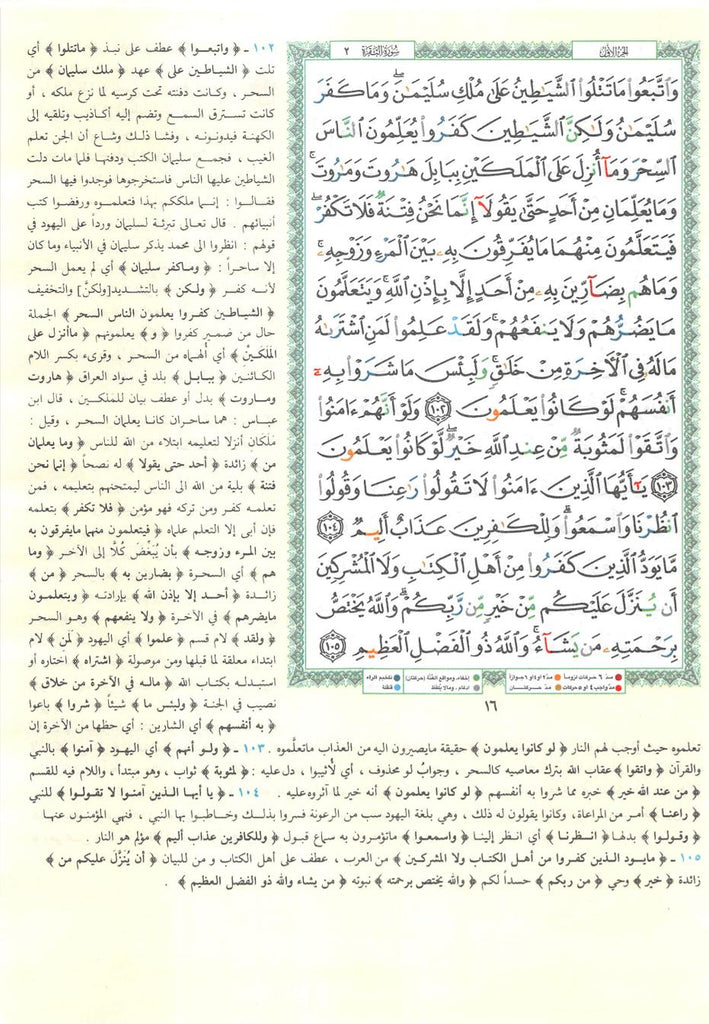 الجزء الأول
سورة البقرة ٢
وَٱتَّبَعُوا۟ مَا تَتْلُوا۟ ٱلشَّيَٰطِينُ عَلَىٰ مُلْكِ سُلَيْمَٰنَ ۖ وَمَا كَفَرَ
سُلَيْمَٰنُ وَلَٰكِنَّ ٱلشَّيَٰطِينَ كَفَرُوا۟ يُعَلِّمُونَ ٱلنَّاسَ
ٱلسِّحْرَ وَمَآ أُنزِلَ عَلَى ٱلْمَلَكَيْنِ بِبَابِلَ هَٰرُوتَ وَمَٰرُوتَ ۚ
وَمَا يُعَلِّمَانِ مِنْ أَحَدٍ حَتَّىٰ يَقُولَآ إِنَّمَا نَحْنُ فِتْنَةٌ فَلَا تَكْفُرْ ۖ
فَيَتَعَلَّمُونَ مِنْهُمَا مَا يُفَرِّقُونَ بِهِۦ بَيْنَ ٱلْمَرْءِ وَزَوْجِهِۦ ۚ
وَمَا هُم بِضَآرِّينَ بِهِۦ مِنْ أَحَدٍ إِلَّا بِإِذْنِ ٱللَّهِ ۚ وَيَتَعَلَّمُونَ
مَا يَضُرُّهُمْ وَلَا يَنفَعُهُمْ ۚ وَلَقَدْ عَلِمُوا۟ لَمَنِ ٱشْتَرَىٰهُ
مَا لَهُۥ فِى ٱلْـَٔاخِرَةِ مِنْ خَلَٰقٍ ۚ وَلَبِئْسَ مَا شَرَوْا۟ بِهِۦٓ
أَنفُسَهُمْ ۚ لَوْ كَانُوا۟ يَعْلَمُونَ ١٠٢ وَلَوْ أَنَّهُمْ ءَامَنُوا۟
وَٱتَّقَوْا۟ لَمَثُوبَةٌ مِّنْ عِندِ ٱللَّهِ خَيْرٌ ۖ لَّوْ كَانُوا۟ يَعْلَمُونَ
١٠٣ يَٰٓأَيُّهَا ٱلَّذِينَ ءَامَنُوا۟ لَا تَقُولُوا۟ رَٰعِنَا وَقُولُوا۟
ٱنظُرْنَا وَٱسْمَعُوا۟ ۗ وَلِلْكَٰفِرِينَ عَذَابٌ أَلِيمٌ ١٠٤
مَّا يَوَدُّ ٱلَّذِينَ كَفَرُوا۟ مِنْ أَهْلِ ٱلْكِتَٰبِ وَلَا ٱلْمُشْرِكِينَ
أَن يُنَزَّلَ عَلَيْكُم مِّنْ خَيْرٍ مِّن رَّبِّكُمْ ۗ وَٱللَّهُ يَخْتَصُّ
بِرَحْمَتِهِۦ مَن يَشَآءُ ۚ وَٱللَّهُ ذُو ٱلْفَضْلِ ٱلْعَظِيمِ ١٠٥
مد ٦ حركات لزوماً مد ٢ أو ٤ أو ٦ جوازاً إخفاء، ومواقع الغنّة (حركتان) تفخيم الراء
مد واجب ٤ أو ٥ حركات مد حركتان ادغام، ومالا يلفظ قلقلة
١٦
١٠٢ ـ ﴿ واتبعوا ﴾ عطف على نبذ ﴿ ماتتلوا ﴾ أي
تلت ﴿ الشياطين على ﴾ عهد ﴿ ملك سليمان ﴾ من
السحر ، وكانت دفنته تحت كرسيه لما نزع ملكه ، أو
كانت تسترق السمع وتضم إليه أكاذيب وتلقيه إلى
الكهنة فيدونونه ، وفشا ذلك وشاع أن الجن تعلم
الغيب ، فجمع سليمان الكتب ودفنها فلما مات دلت
الشياطين عليها الناس فاستخرجوها فوجدوا فيها السحر
فقالوا : إنما ملككم بهذا فتعلموه ورفضوا كتب
أنبيائهم . قال تعالى تبرئة لسليمان ورداً على اليهود في
قولهم : انظروا الى محمد يذكر سليمان في الأنبياء وما كان
إلا ساحراً : ﴿ وماكفر سليمان ﴾ أي لم يعمل السحر
لأنه كفر ﴿ ولكن ﴾ بالتشديد[ولكنّ] والتخفيف
﴿ الشياطين كفروا يعلمون الناس السحر ﴾ الجملة
حال من ضمير كفروا ﴿ و ﴾ يعلمونهم ﴿ ماأنزل على
الملَكَيْن ﴾ أي ألهماه من السحر ، وقرىء بكسر اللام
الكائنين ﴿ ببابل ﴾ بلد في سواد العراق ﴿ هاروت
وماروت ﴾ بدل أو عطف بيان للملكين ، قال ابن
عباس : هما ساحران كانا يعلمان السحر ، وقيل :
مَلَكان أنزلا لتعليمه ابتلاء من الله للناس ﴿ وما يعلمان
من ﴾ زائدة ﴿ أحد حتى يقولا ﴾ له نصحاً ﴿ إنما نحن
فتنة ﴾ بلية من الله الى الناس ليمتحنهم بتعليمه ، فمن
تعلمه كفر ومن تركه فهو مؤمن ﴿ فلا تكفر ﴾ بتعلمه
فإن أبى إلا التعلم علماه ﴿ فيتعلمون منهما مايفرقون به
بين المرء وزوجه ﴾ بأن يُبَغِّض كُلًّا إلى الآخر ﴿ وما
هم ﴾ أي السحرة ﴿ بضارين به ﴾ بالسحر ﴿ من ﴾
زائدة ﴿ أحد إلا بإذن الله ﴾ بإرادته ﴿ ويتعلمون
مايضرهم ﴾ في الآخرة ﴿ ولا ينفعهم ﴾ وهو السحر
﴿ ولقد ﴾ لام قسم ﴿ علموا ﴾ أي اليهود ﴿ لَمَن ﴾ لام
ابتداء معلقة لما قبلها ومن موصولة ﴿ اشتراه ﴾ اختاره أو
استبدله بكتاب الله ﴿ ماله في الآخرة من خلاق ﴾
نصيب في الجنة ﴿ ولبئس ما ﴾ شيئاً ﴿ شروا ﴾ باعوا
﴿ به أنفسهم ﴾ أي الشارين : أي حظها من الآخرة إن
تعلموه حيث أوجب لهم النار ﴿ لو كانوا يعلمون ﴾ حقيقة مايصيرون اليه من العذاب ماتعلَّموه . ١٠٣ ـ ﴿ ولو أنهم ﴾ أي اليهود ﴿ آمنوا ﴾ بالنبي
والقرآن ﴿ واتقوا ﴾ عقاب الله بترك معاصيه كالسحر ، وجوابُ لو محذوف ، أي لأثيبوا ، دل عليه : ﴿ لمثوبة ﴾ ثواب ، وهو مبتدأ ، واللام فيه للقسم
﴿ من عند الله خير ﴾ خبره مما شروا به أنفسهم ﴿ لو كانوا يعلمون ﴾ أنه خير لما آثروه عليه . ١٠٤ ـ ﴿ يا أيها الذين آمنوا لا تقولوا ﴾ للنبي
﴿ راعنا ﴾ أمر من المراعاة، وكانوا يقولون له ذلك ، وهي بلغة اليهود سب من الرعونة فسروا بذلك وخاطبوا بها النبي ، فنهي المؤمنون عنها
﴿ وقولوا ﴾ بدلها ﴿ انظرنا ﴾ أي انظر إلينا ﴿ واسمعوا ﴾ ماتؤمرون به سماع قبول ﴿ وللكافرين عذاب أليم ﴾ مؤلم هو النار .
١٠٥ ـ ﴿ مايود الذين كفروا من أهل الكتاب ولا المشركين ﴾ من العرب ، عطف على أهل الكتاب و من للبيان ﴿ أن يُنَزَّلَ عليكم من ﴾
زائدة ﴿ خير ﴾ وحي ﴿ من ربكم ﴾ حسداً لكم ﴿ والله يختص برحمته ﴾ نبوته ﴿ من يشاء والله ذو الفضل العظيم ﴾ .